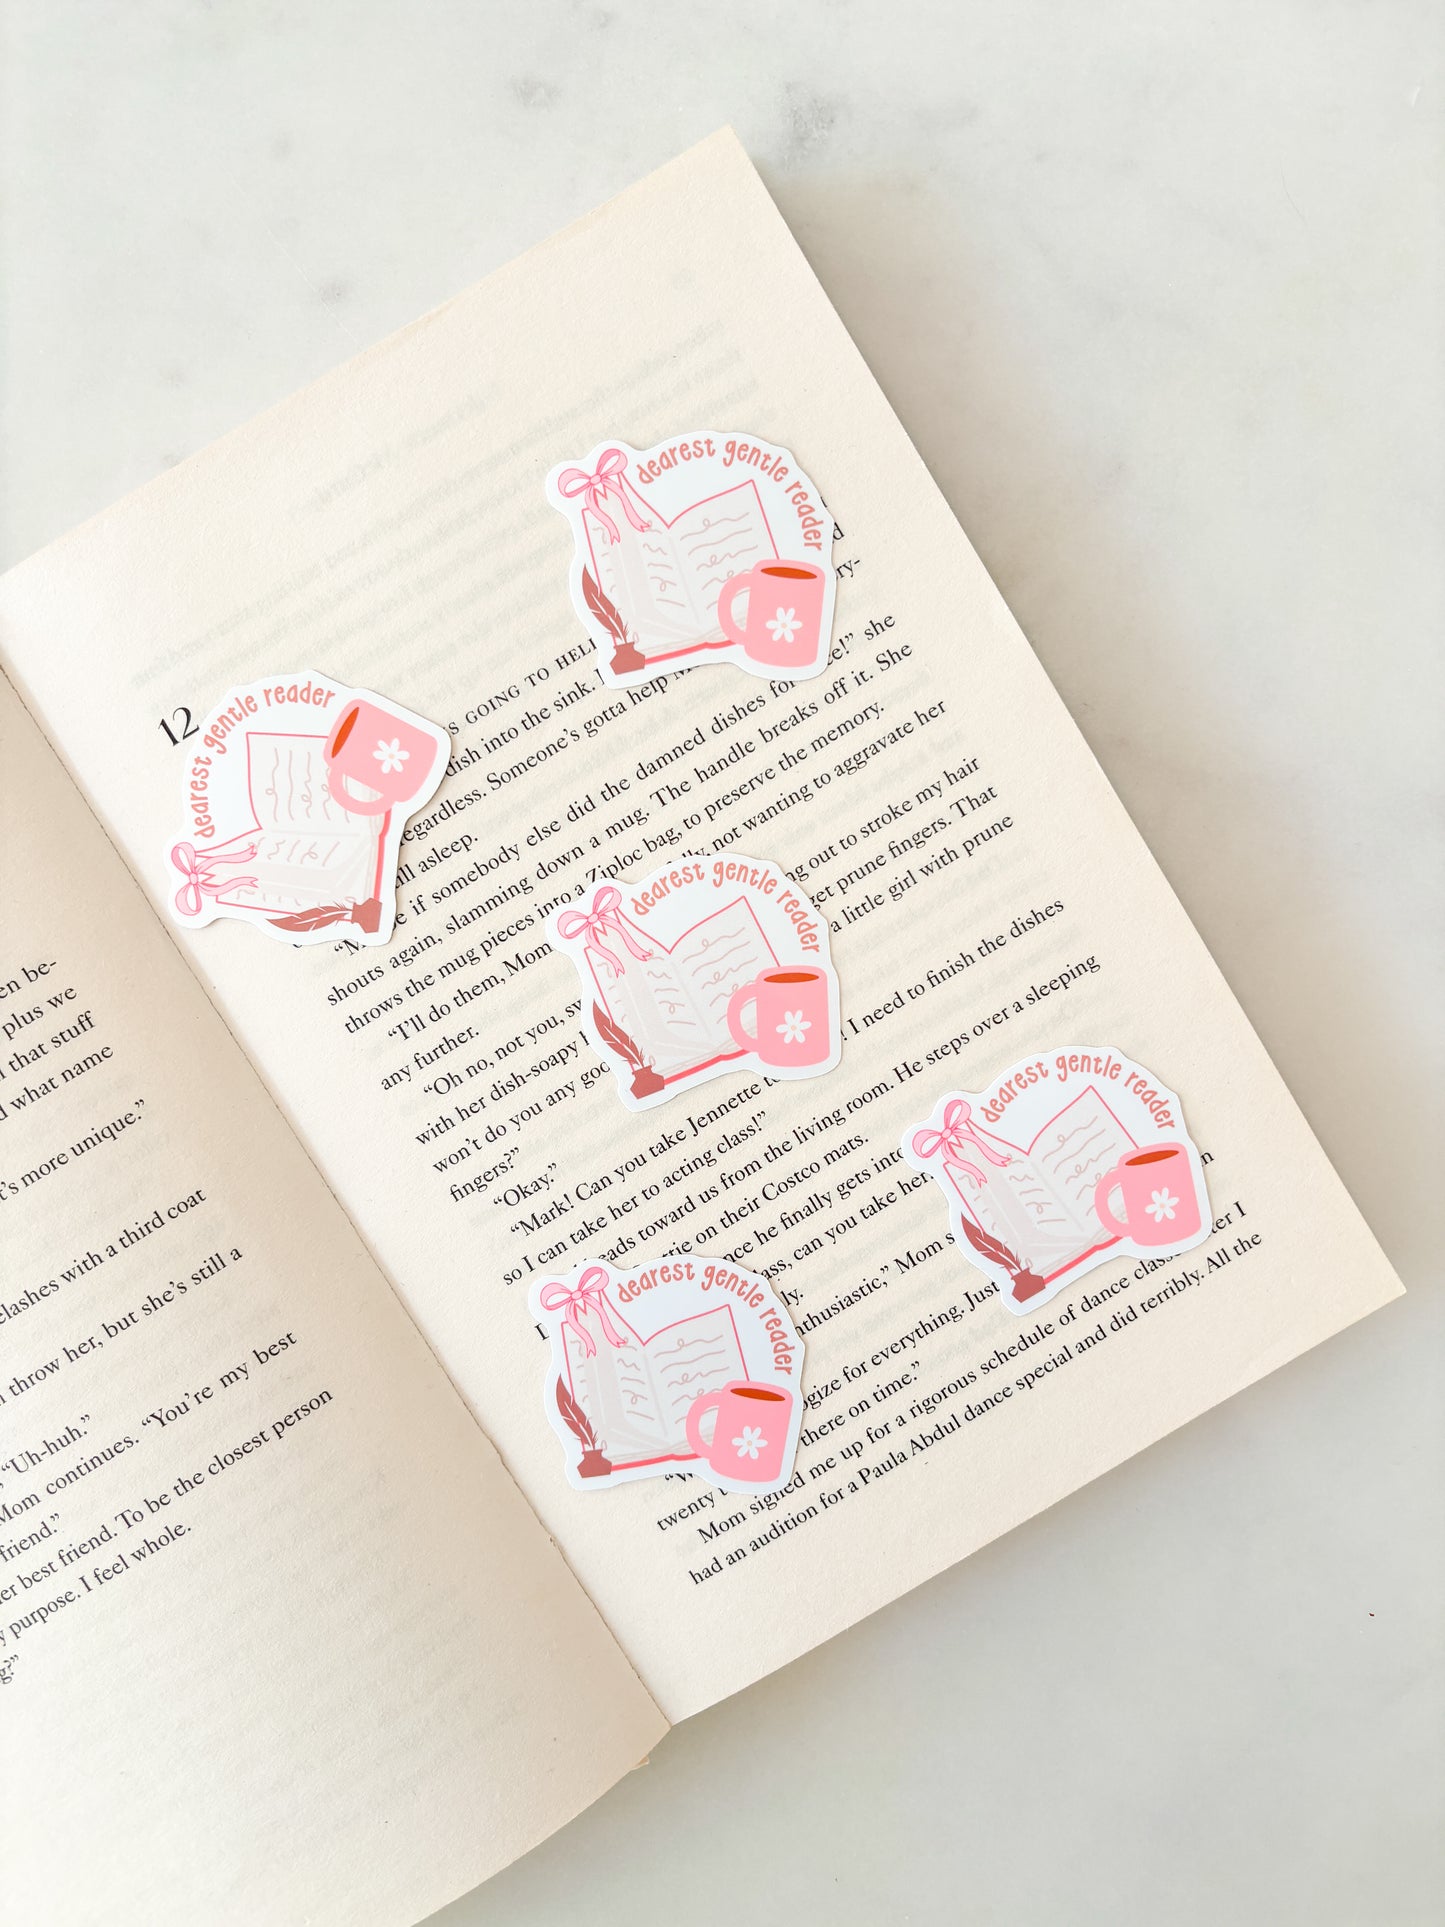 en be-
plus we
that stuff
what name
t’s more unique.”
elashes with a third coat
throw her, but she’s still a
“Uh-huh.”
Mom continues. “You’re my best
friend.”
er best friend. To be the closest person
purpose. I feel whole.
g?”
12
GOING TO HELL
dish into the sink.
regardless. Someone’s gotta help
all asleep.
if somebody else did the damned dishes for me!” she
shouts again, slamming down a mug. The handle breaks off it. She
throws the mug pieces into a Ziploc bag, to preserve the memory.
“I’ll do them, Mom not wanting to aggravate her
any further.
“Oh no, not you, sw ing out to stroke my hair
with her dish-soapy get prune fingers. That
won’t do you any goo a little girl with prune
fingers?”
“Okay.”
“Mark! Can you take Jennette to ! I need to finish the dishes
so I can take her to acting class!”
eads toward us from the living room. He steps over a sleeping
on their Costco mats.
nce he finally gets into
ass, can you take her
ly.
nthusiastic,” Mom s
ogize for everything. Just
twenty there on time.”
Mom signed me up for a rigorous schedule of dance class after I
had an audition for a Paula Abdul dance special and did terribly. All the
dearest gentle reader
dearest gentle reader
dearest gentle reader
dearest gentle reader
dearest gentle reader